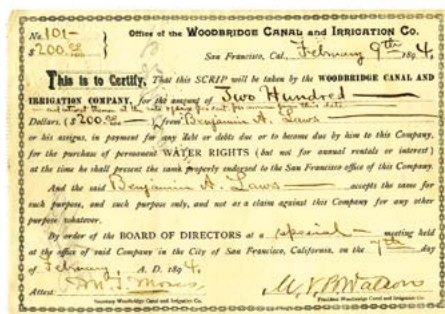 No. 101-
$200.00
Office of the WOODBRIDGE CANAL AND IRRIGATION Co.
San Francisco, Cal., February 9th 1894.
This is to Certify, That this SCRIP will be taken by the WOODBRIDGE CANAL AND
IRRIGATION COMPANY, for the amount of Two Hundred
and interest thereon at the rate of per cent per annum from this date
Dollars, ($200.00) from Benjamin A. Laws
or his assigns, in payment for any debt or debts due or to become due by him to this Company,
for the purchase of permanent WATER RIGHTS (but not for annual rentals or interest)
at the time he shall present the same properly endorsed to the San Francisco office of this Company.
And the said Benjamin A. Laws accepts the same for
such purpose, and such purpose only, and not as a claim against this Company for any other
purpose whatever.
By order of the BOARD OF DIRECTORS at a special meeting held
at the office of said Company in the City of San Francisco, California, on the 7th day
of February, A. D. 1894.
Attest
Secretary Woodbridge Canal and Irrigation Co.
President Woodbridge Canal and Irrigation Co.